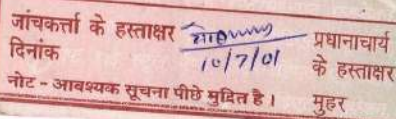 जांचकर्त्ता के हस्ताक्षर प्रधानाचार्य
दिनांक 10/7/01 के हस्ताक्षर
नोट - आवश्यक सूचना पीछे मुद्रित है। मुहर